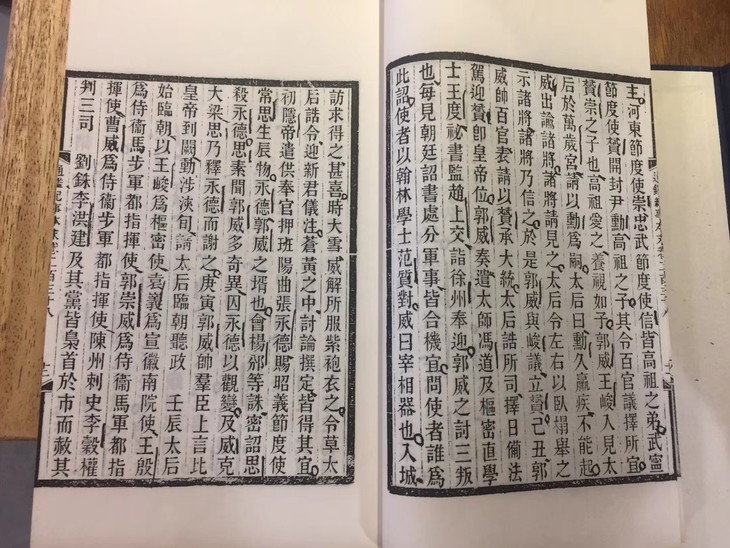 主河東節度使崇忠武節度使信皆高祖之弟武寧
節度使贇開封尹勳高祖之子其令百官議擇所宜
贇崇之子也高祖愛之養視如子郭威王峻入見太
后於萬歲宮請以勳爲嗣太后曰勳久羸疾不能起
威出諭諸將諸將請見之太后令左右以臥榻舉之
示諸將諸將乃信之於是郭威與峻議立贇己丑郭
威帥百官表請以贇承大統太后誥所司擇日備法
駕迎贇卽皇帝位郭威奏遣太師馮道及樞密直學
士王度祕書監趙上交詣徐州奉迎郭威之討三叛
也每見朝廷詔書處分軍事皆合機宜問使者誰爲
此詔使者以翰林學士范質對威曰宰相器也入城
訪求得之甚喜時大雪威解所服紫袍衣之令草太
后誥令迎新君儀注蒼黃之中討論撰定皆得其宜
初隱帝遣供奉官押班陽曲張永德賜昭義節度使
常思生辰物永德郭威之壻也會楊邠等誅密詔思
殺永德思素聞郭威多奇異囚永德以觀變及威克
大梁思乃釋永德而謝之庚寅郭威帥羣臣上言比
皇帝到闕動涉浹旬請太后臨朝聽政 壬辰太后
始臨朝以王峻爲樞密使袁義爲宣徽南院使王殷
爲侍衞馬步軍都指揮使郭崇威爲侍衞馬軍都指
揮使曹威爲侍衞步軍都指揮使陳州刺史李穀權
判三司 劉銖李洪建及其黨皆梟首於市而赦其